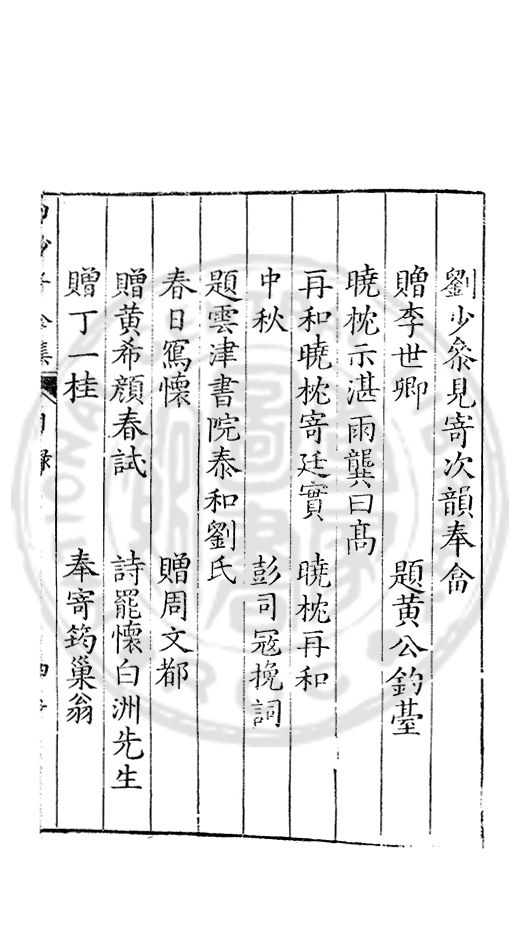 劉少叅見寄次韻奉畣
贈李世卿　題黃公釣臺
曉枕示湛雨龔曰高
再和曉枕寄廷實　曉枕再和
中秋　彭司冦挽詞
題雲津書院泰和劉氏
春日寫懷　贈周文都
贈黃希顏春試　詩罷懷白洲先生
贈丁一桂　奉寄筠巢翁
白沙子全集　目錄